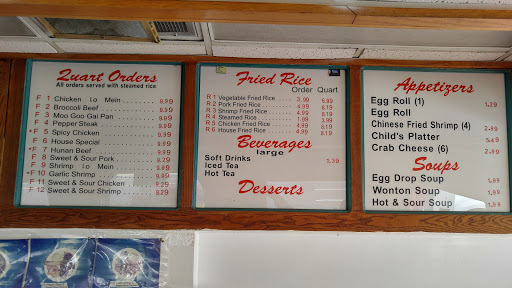 Quart Orders
All orders served with steamed rice
F 1 Chicken Lo Mein 9.99
F 2 Broccoli Beef 9.99
F 3 Moo Goo Gai Pan 9.99
F 4 Pepper Steak 9.99
*F 5 Spicy Chicken 9.99
F 6 House Special 9.99
*F 7 Hunan Beef 9.99
F 8 Sweet & Sour Pork 9.99
F 9 Shrimp Lo Mein 9.99
*F 10 Garlic Shrimp 9.99
F 11 Sweet & Sour Chicken 9.29
F 12 Sweet & Sour Shrimp 9.99
Fried Rice
Order Quart
R 1 Vegetable Fried Rice 3.99 6.89
R 2 Pork Fried Rice 4.99 8.19
R 3 Shrimp Fried Rice 4.99 8.19
R 4 Steamed Rice
R 5 Chicken Fried Rice 4.99 8.19
R 6 House Fried Rice 4.99 8.19
Beverages
large
Soft Drinks
Iced Tea
Hot Tea
Desserts
Appetizers
Egg Roll (1) 1.29
Egg Roll
Chinese Fried Shrimp (4) 2.89
Child's Platter 5.49
Crab Cheese (6) 2.99
Soups
Egg Drop Soup 1.89
Wonton Soup 1.89
Hot & Sour Soup 1.89